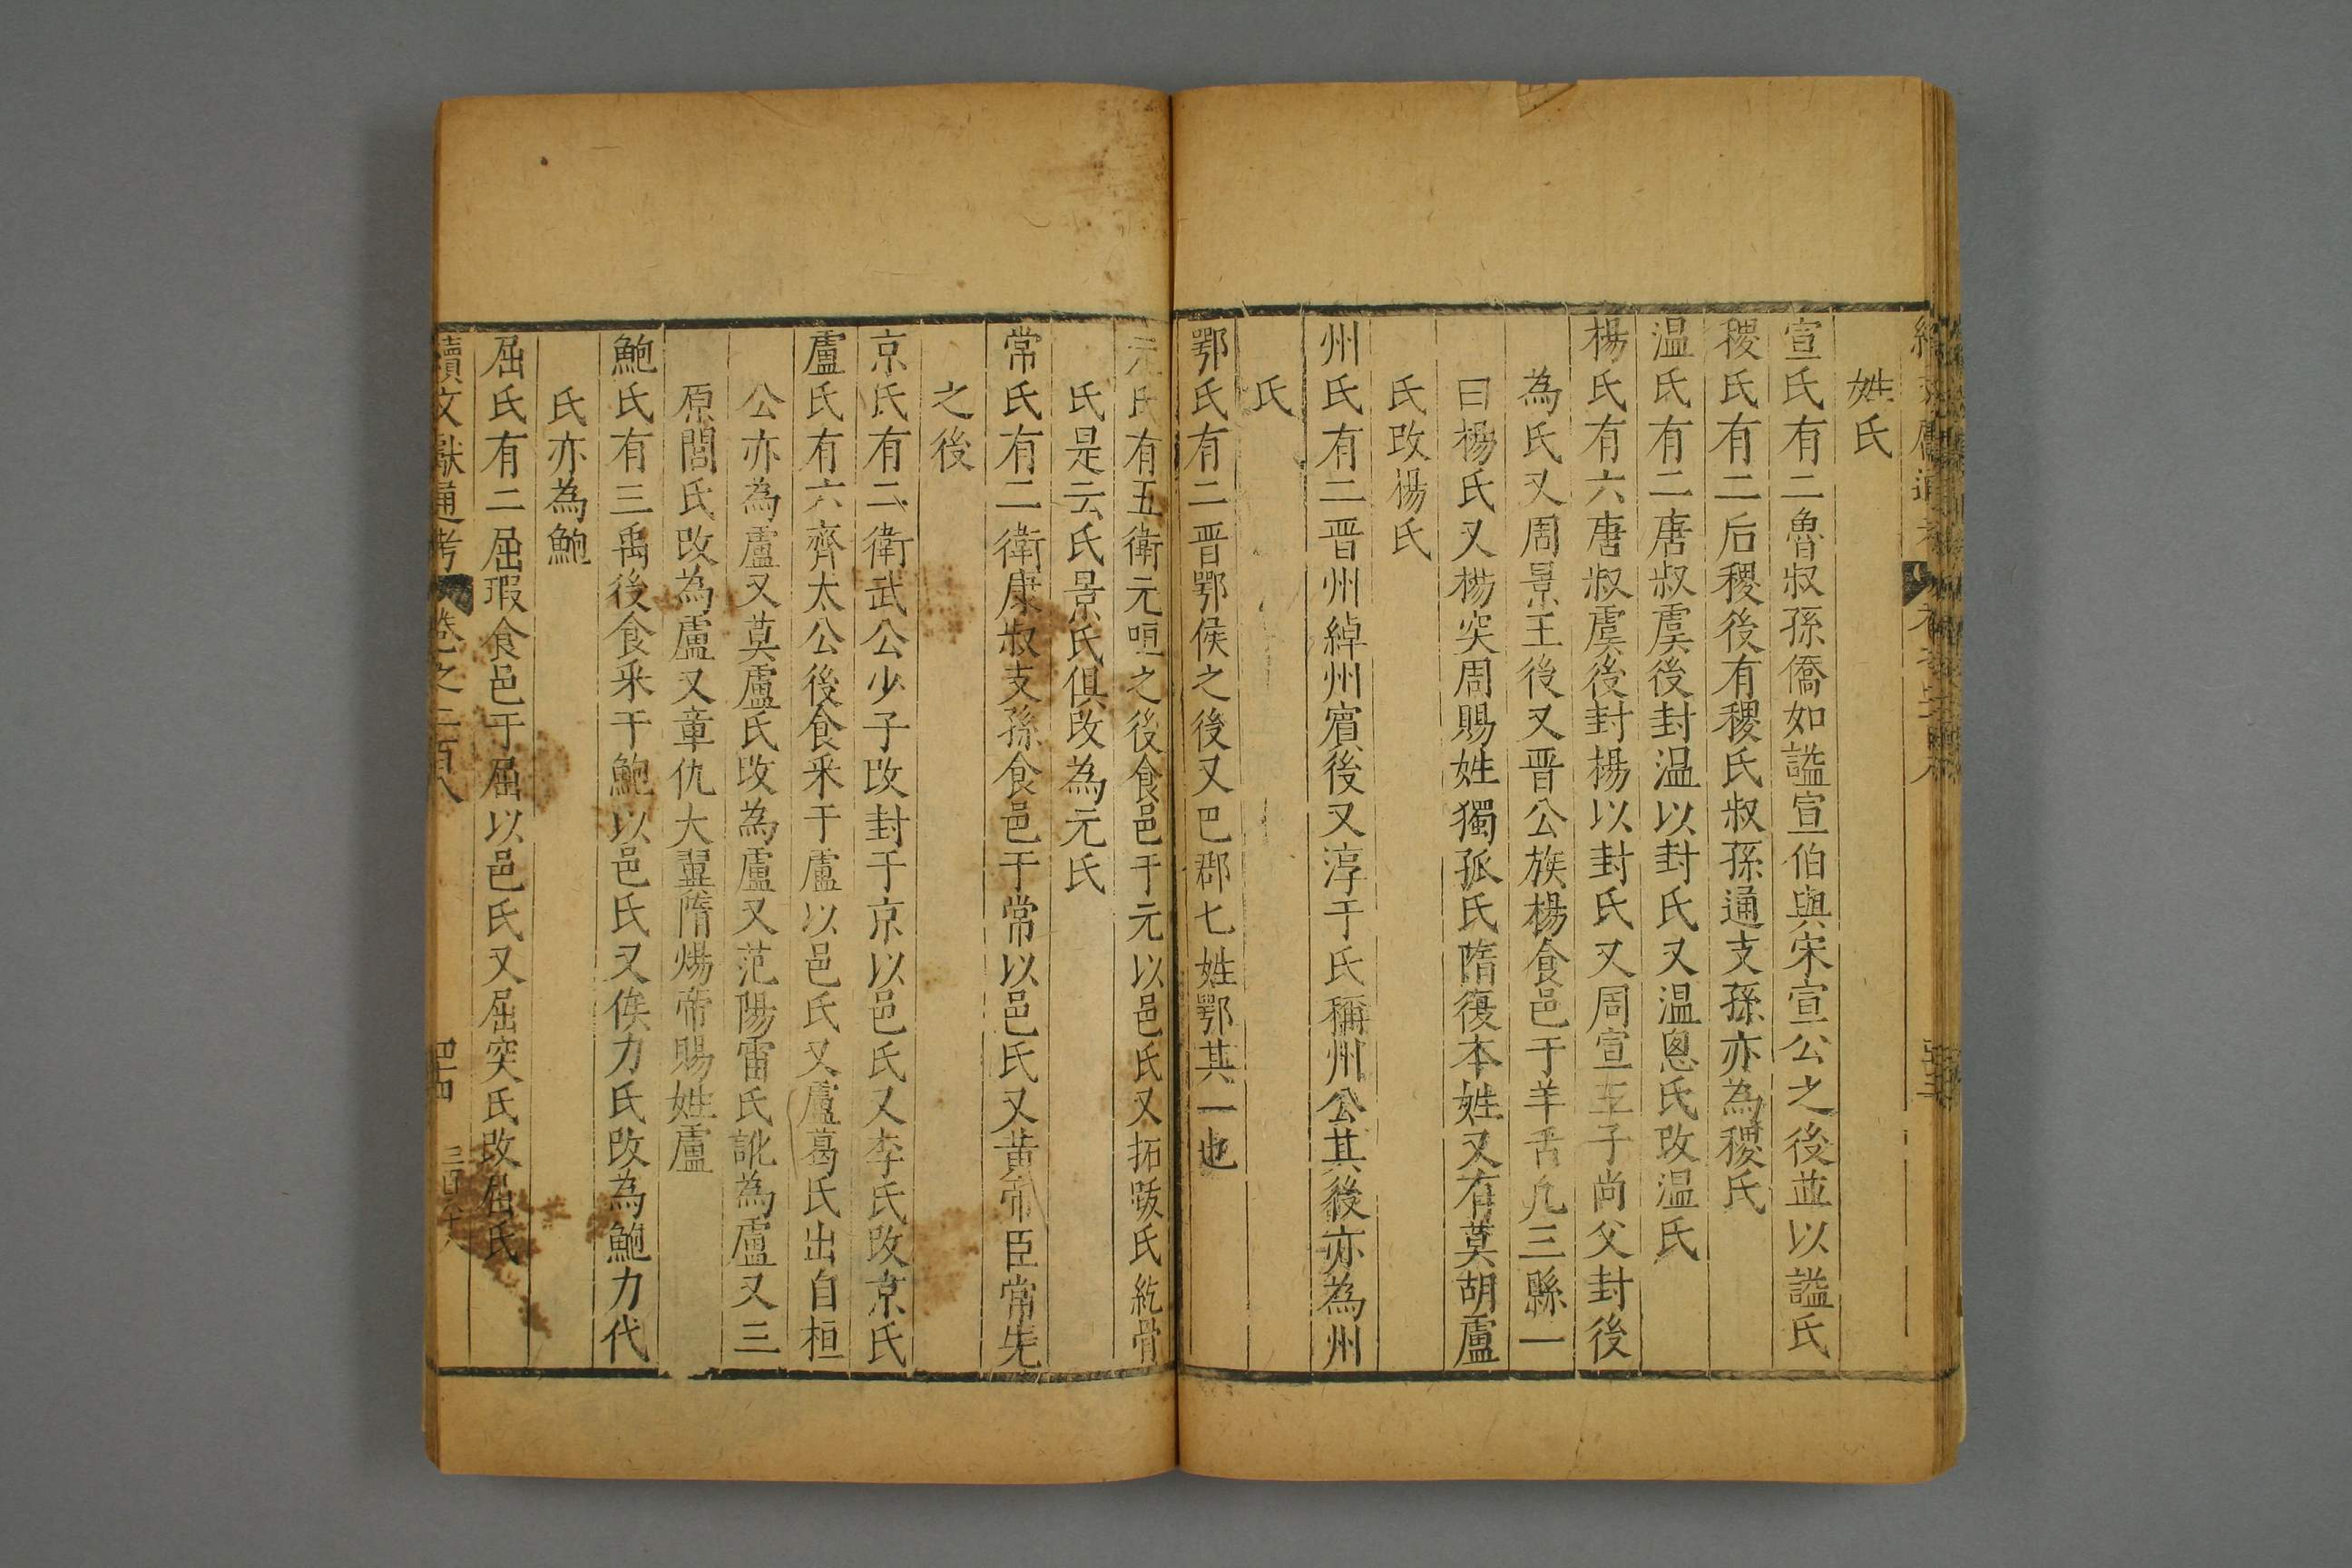 姓氏
宣氏有二魯叔孫僑如諡宣伯與宋宣公之後並以諡氏
稷氏有二后稷後有稷氏叔孫通支孫亦為稷氏
温氏有二唐叔虞後封温以封氏又温盆氏改温氏
楊氏有六唐叔虞後封楊以封氏又周宣王子尚父封後
為氏又周景王後又晋公族楊食邑于羊舌凡三縣一
曰楊氏又楊突周賜姓獨孤氏隋復本姓又有莫胡盧
氏改楊氏
州氏有二晋州綽州賓後又淳于氏稱州公其後亦為州
氏
鄂氏有二晋鄂侯之後又巴郡七姓鄂其一也
元氏有五衛元咺之後食邑于元以邑氏又拓跋氏紇骨
氏是云氏景氏俱改為元氏
常氏有二衛康叔支孫食邑于常以邑氏又黄帝臣常先
之後
京氏有二衛武公少子改封于京以邑氏又李氏改京氏
盧氏有六齊太公後食釆于盧以邑氏又盧葛氏出自桓
公亦為盧又莫盧氏改為盧又范陽雷氏訛為盧又三
原閭氏改為盧又章仇大翼隋煬帝賜姓盧
鮑氏有三禹後食釆于鮑以邑氏又俟力氏改為鮑力代
氏亦為鮑
屈氏有二屈瑕食邑于屈以邑氏又屈突氏改屈氏
續文獻通考 卷之二百八